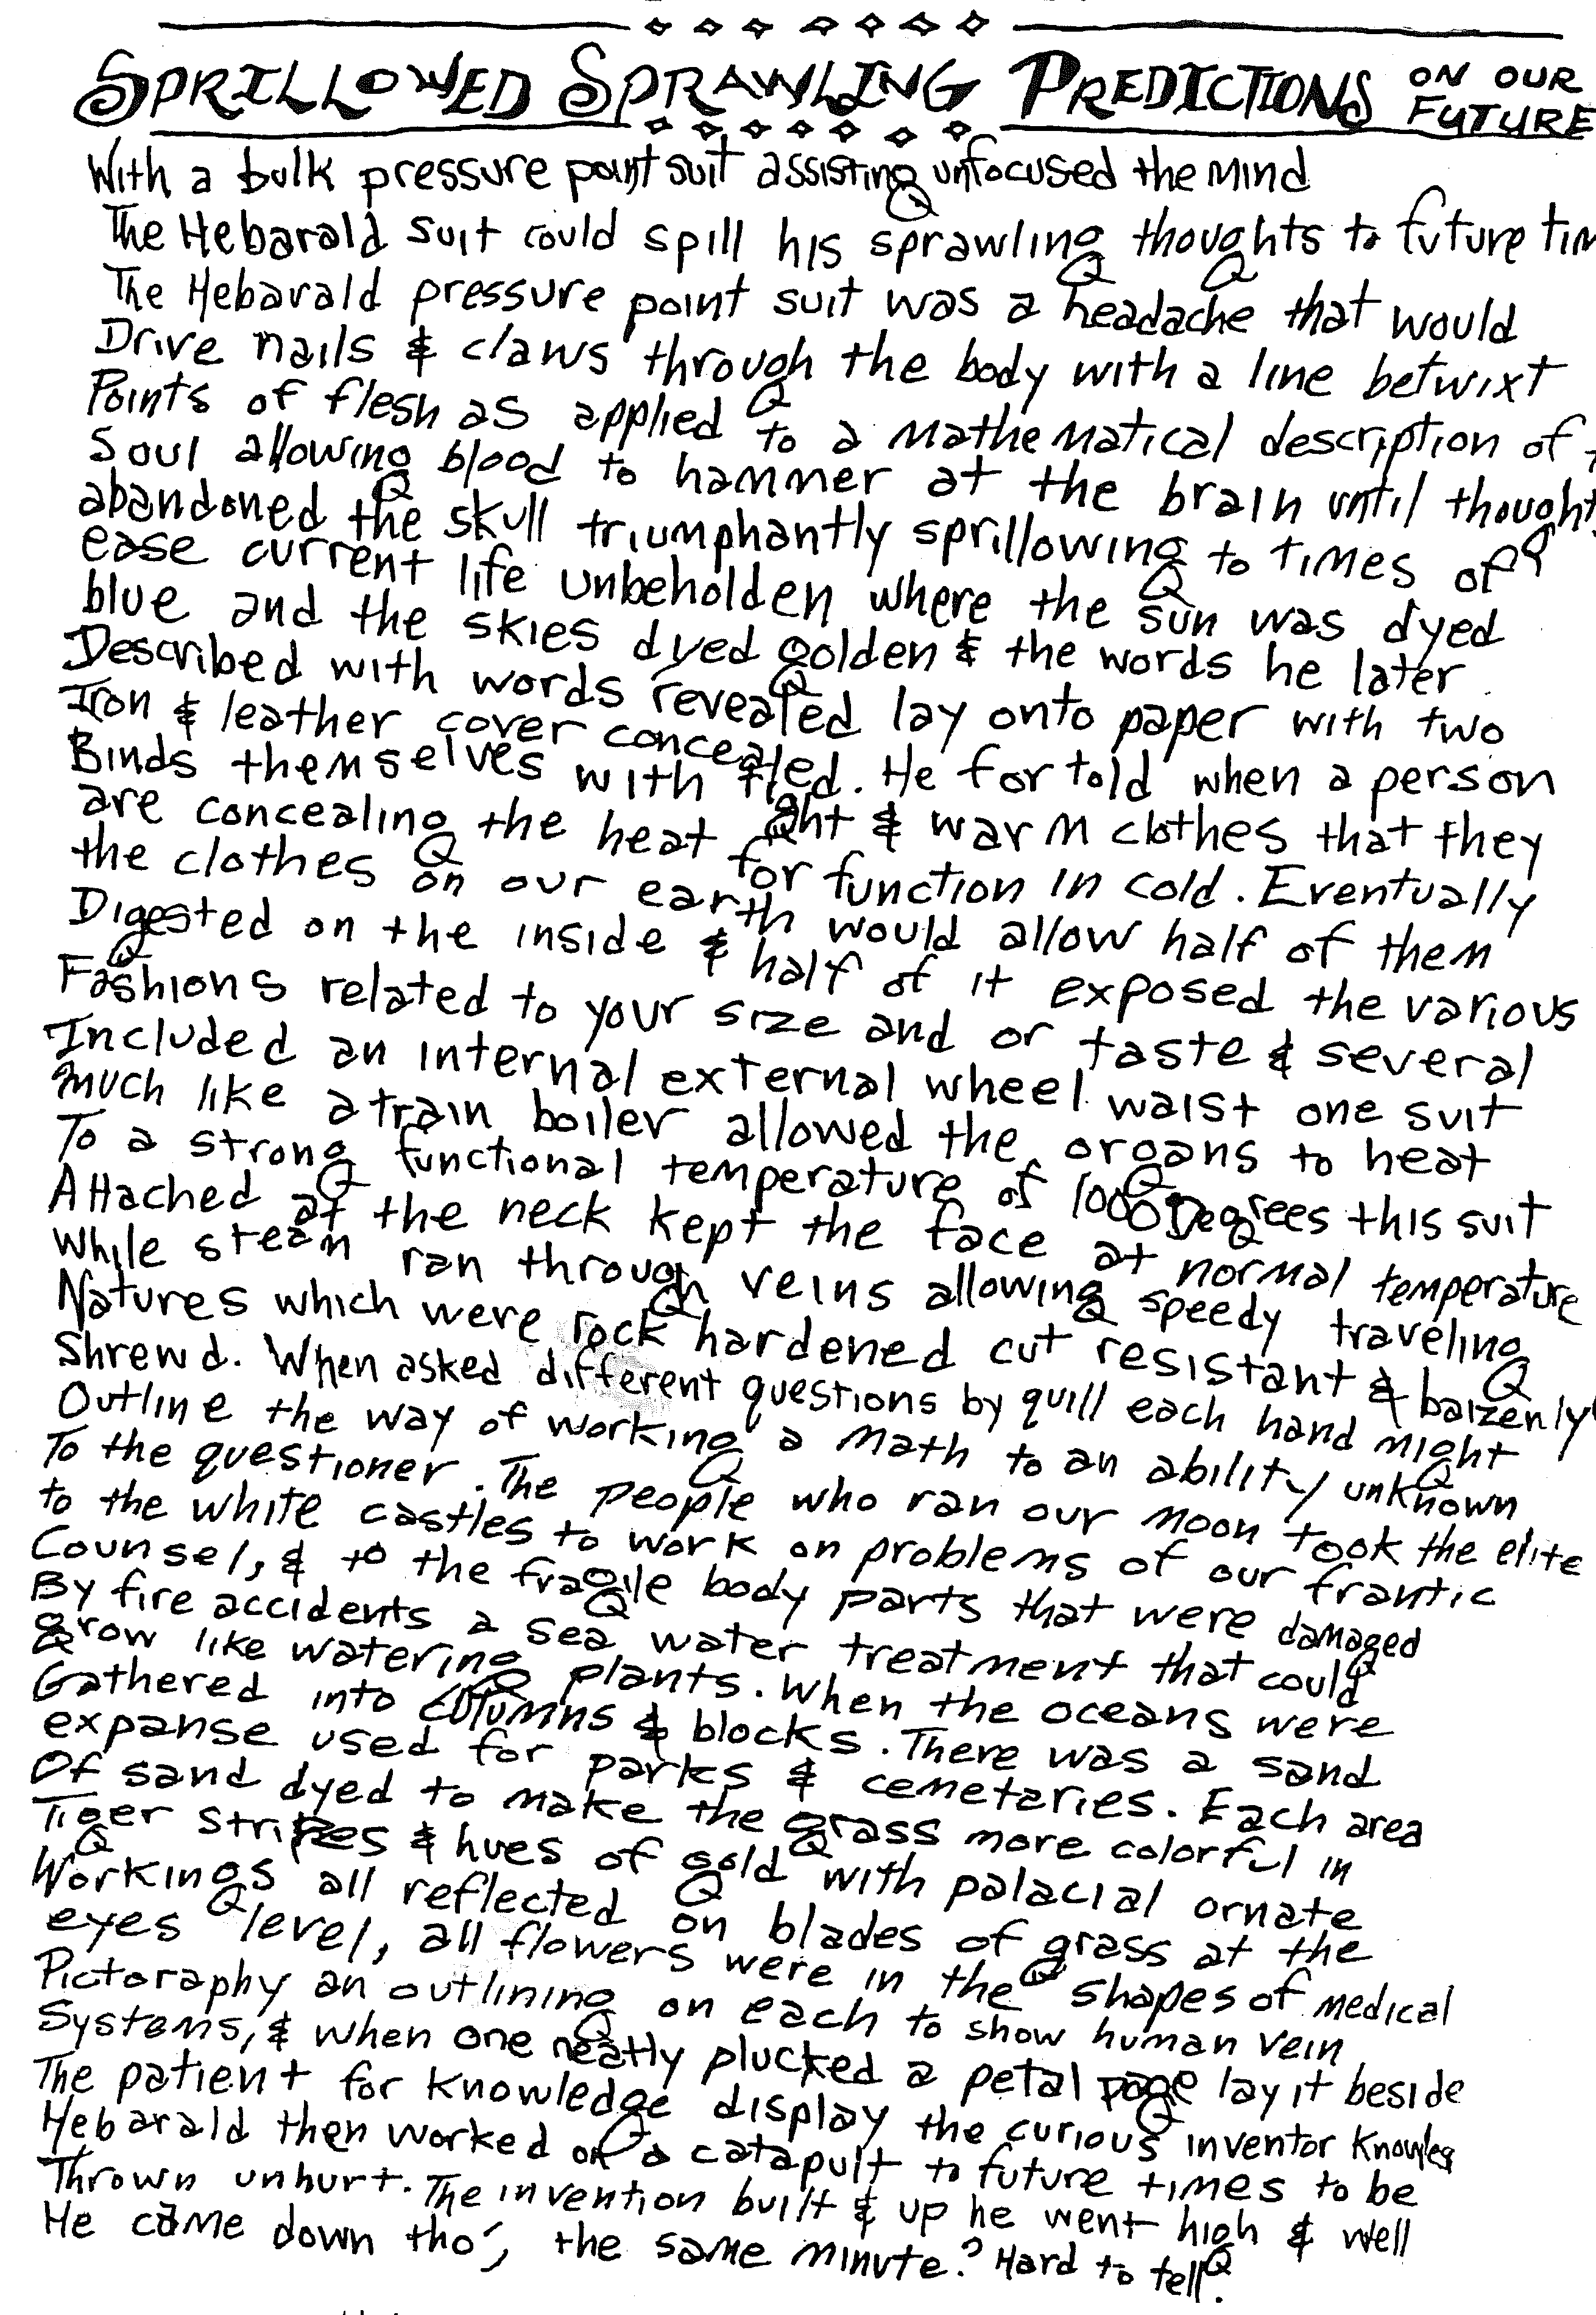 SPRILLOWED SPRAWLING PREDICTIONS ON OUR FUTURE
With a bulk pressure point suit assisting unfocused the mind
The Hebarald suit could spill his sprawling thoughts to future
The Hebarald pressure point suit was a headache that would
Drive nails & claws through the body with a line betwixt
Points of flesh as applied to a mathematical description of
Soul allowing blood to hammer at the brain until thought
abandoned the skull triumphantly sprillowing to times of
ease current life unbeholden where the sun was dyed
blue and the skies dyed golden & the words he later
Described with words revealed lay onto paper with two
Iron & leather cover concealed. He fortold when a person
Binds themselves with tight & warm clothes that they
are concealing the heat for function in cold. Eventually
the clothes on our earth would allow half of them
Digested on the inside & half of it exposed the various
Fashions related to your size and or taste & several
Included an internal external wheel waist one suit
much like a train boiler allowed the organs to heat
To a strong functional temperature of 1000 Degrees this suit
Attached at the neck kept the face at normal temperature
While steam ran through veins allowing speedy traveling
Natures which were rock hardened cut resistant & baizenly
Shrewd. When asked different questions by quill each hand might
Outline the way of working a math to an ability unknown
To the questioner. The people who ran our moon took the elite
to the white castles to work on problems of our frantic
Counsel, & to the fragile body parts that were damaged
By fire accidents a sea water treatment that could
grow like watering plants. When the oceans were
Gathered into columns & blocks. There was a sand
expanse used for parks & cemetaries. Each area
Of sand dyed to make the grass more colorful in
Tiger stripes & hues of gold with palacial ornate
Workings all reflected on blades of grass at the
eyes level, all flowers were in the shapes of medical
Pictoraphy an outlining on each to show human vein
Systems, & when one neatly plucked a petal page lay it beside
The patient for knowledge display the curious inventor
Hebarald then worked on a catapult to future times to be
Thrown unhurt. The invention built & up he went high & well
He came down tho', the same minute? Hard to tell.